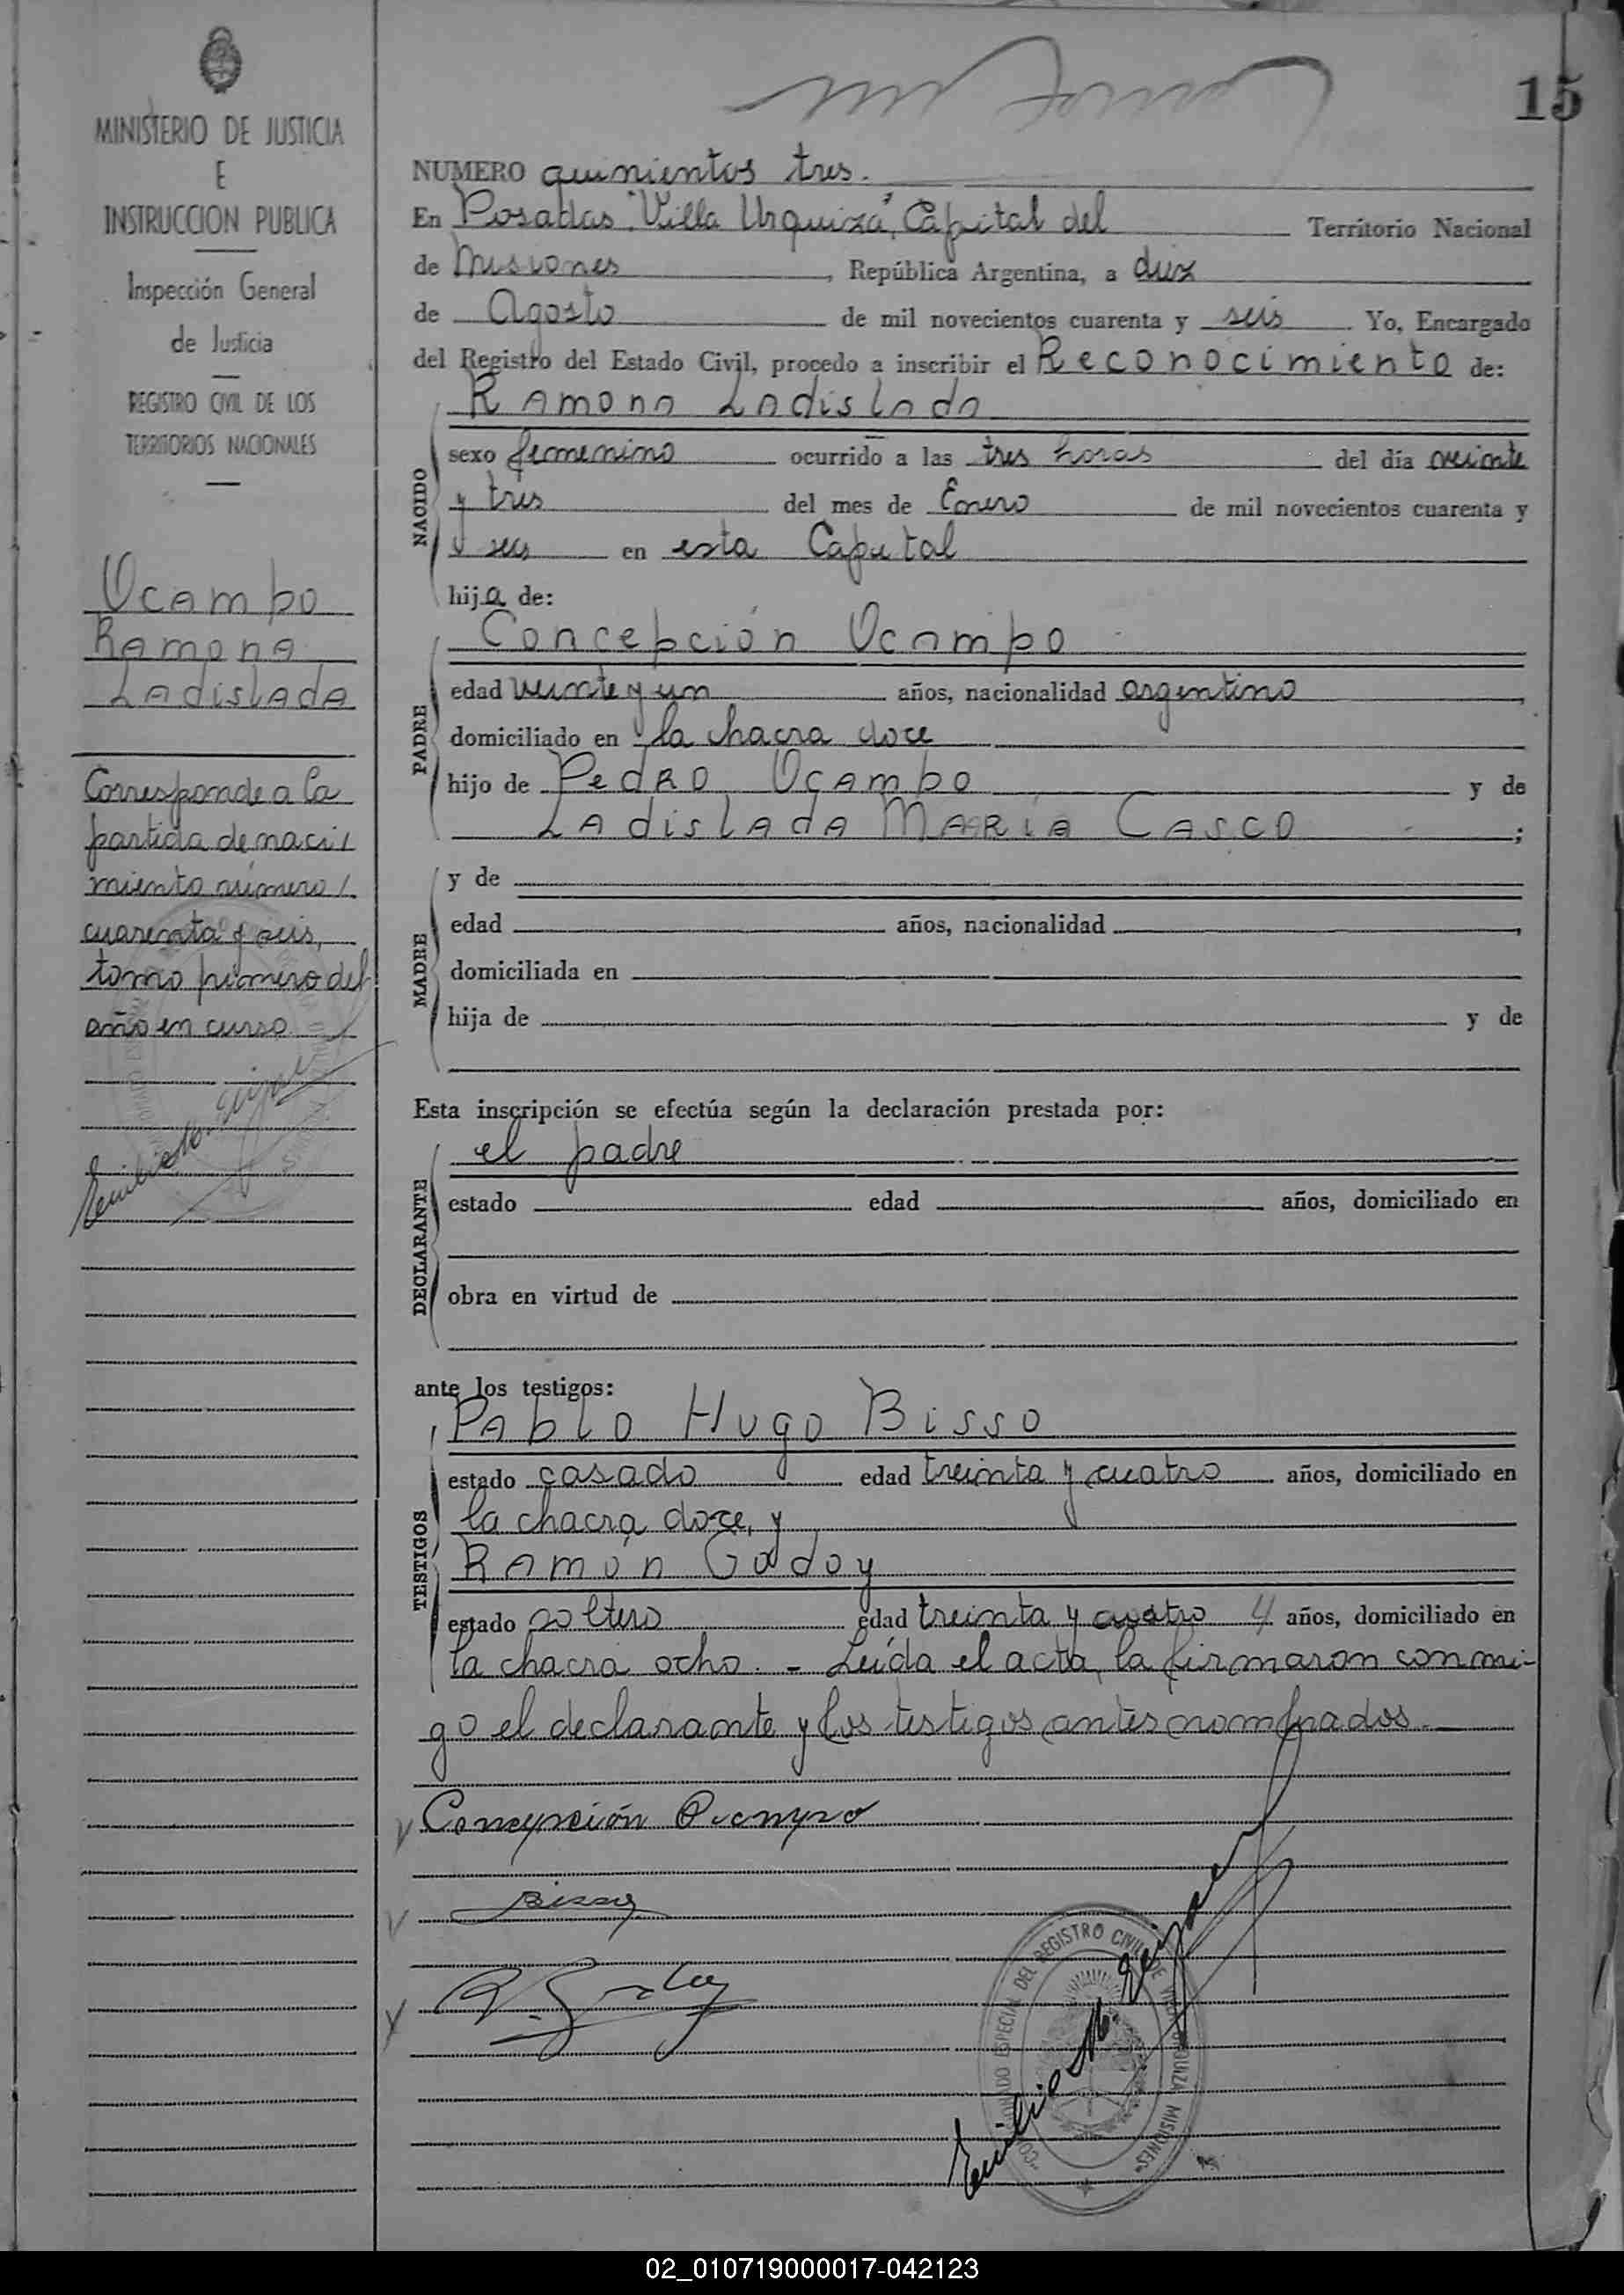 15
MINISTERIO DE JUSTICIA
E
INSTRUCCION PUBLICA
Inspección General
de Justicia
REGISTRO CIVIL DE LOS
TERRITORIOS NACIONALES
Ocampo
Ramona
Ladislada
Corresponde a la
partida de naci/
miento número/
cuarenta y seis,
tomo primero del
año en curso
Emilio M.
NUMERO quinientos tres.
En Posadas "Villa Urquiza", Capital del Territorio Nacional
de Misiones, República Argentina, a diez
de Agosto de mil novecientos cuarenta y seis. Yo, Encargado
del Registro del Estado Civil, procedo a inscribir el Reconocimiento de:
Ramona Ladislada
NACIDO
sexo femenino ocurrido a las tres horas del día veinte
y tres del mes de Enero de mil novecientos cuarenta y
y seis en esta Capital
hija de:
Concepción Ocampo
PADRE
edad veinte y un años, nacionalidad argentino,
domiciliado en la chacra doce
hijo de Pedro Ocampo y de
Ladislada María Casco;
MADRE
y de
edad años, nacionalidad,
domiciliada en
hija de y de
Esta inscripción se efectúa según la declaración prestada por:
el padre
DECLARANTE
estado edad años, domiciliado en
obra en virtud de
ante los testigos:
Pablo Hugo Bisso
TESTIGOS
estado casado edad treinta y cuatro años, domiciliado en
la chacra doce, y
Ramón Godoy
estado soltero edad treinta y cuatro 4 años, domiciliado en
la chacra ocho. - Leída el acta, la firmaron conmi-
go el declarante y los testigos antes nombrados.
Concepción Ocampo
Bisso
R. Godoy
Emilio M.
COMISIONADO ESPECIAL DEL REGISTRO CIVIL DE VILLA URQUIZA MISIONES
02_010719000017-042123